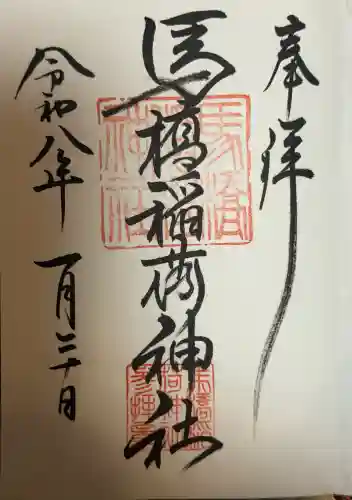 奉拝
馬橋稲荷神社
令和八年 一月三十日